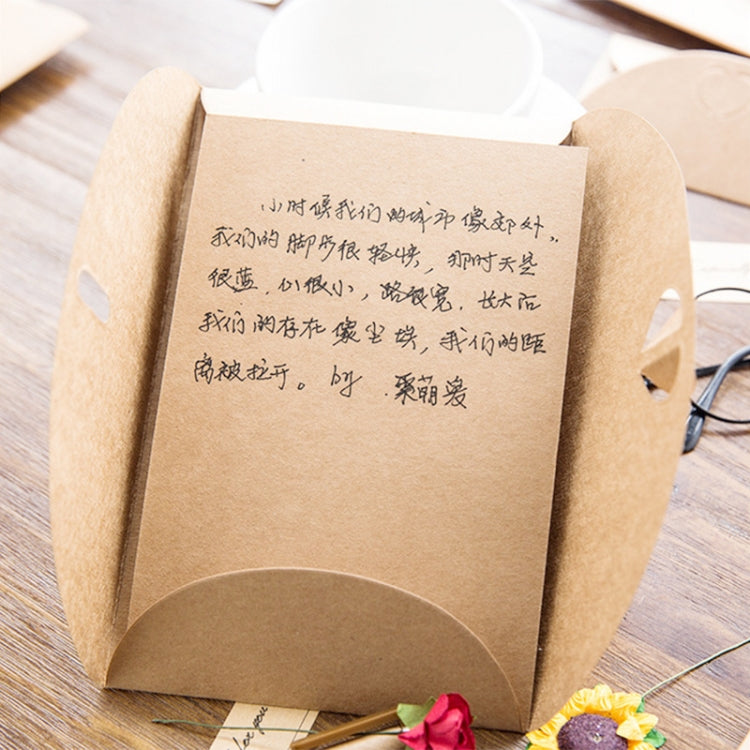 小时候我们的城市像郊外、
我们的脚步很轻快，那时天是
很蓝，心很小，路很宽，长大后
我们的存在像尘埃，我们的距
离被拉开。by 萌爱
you